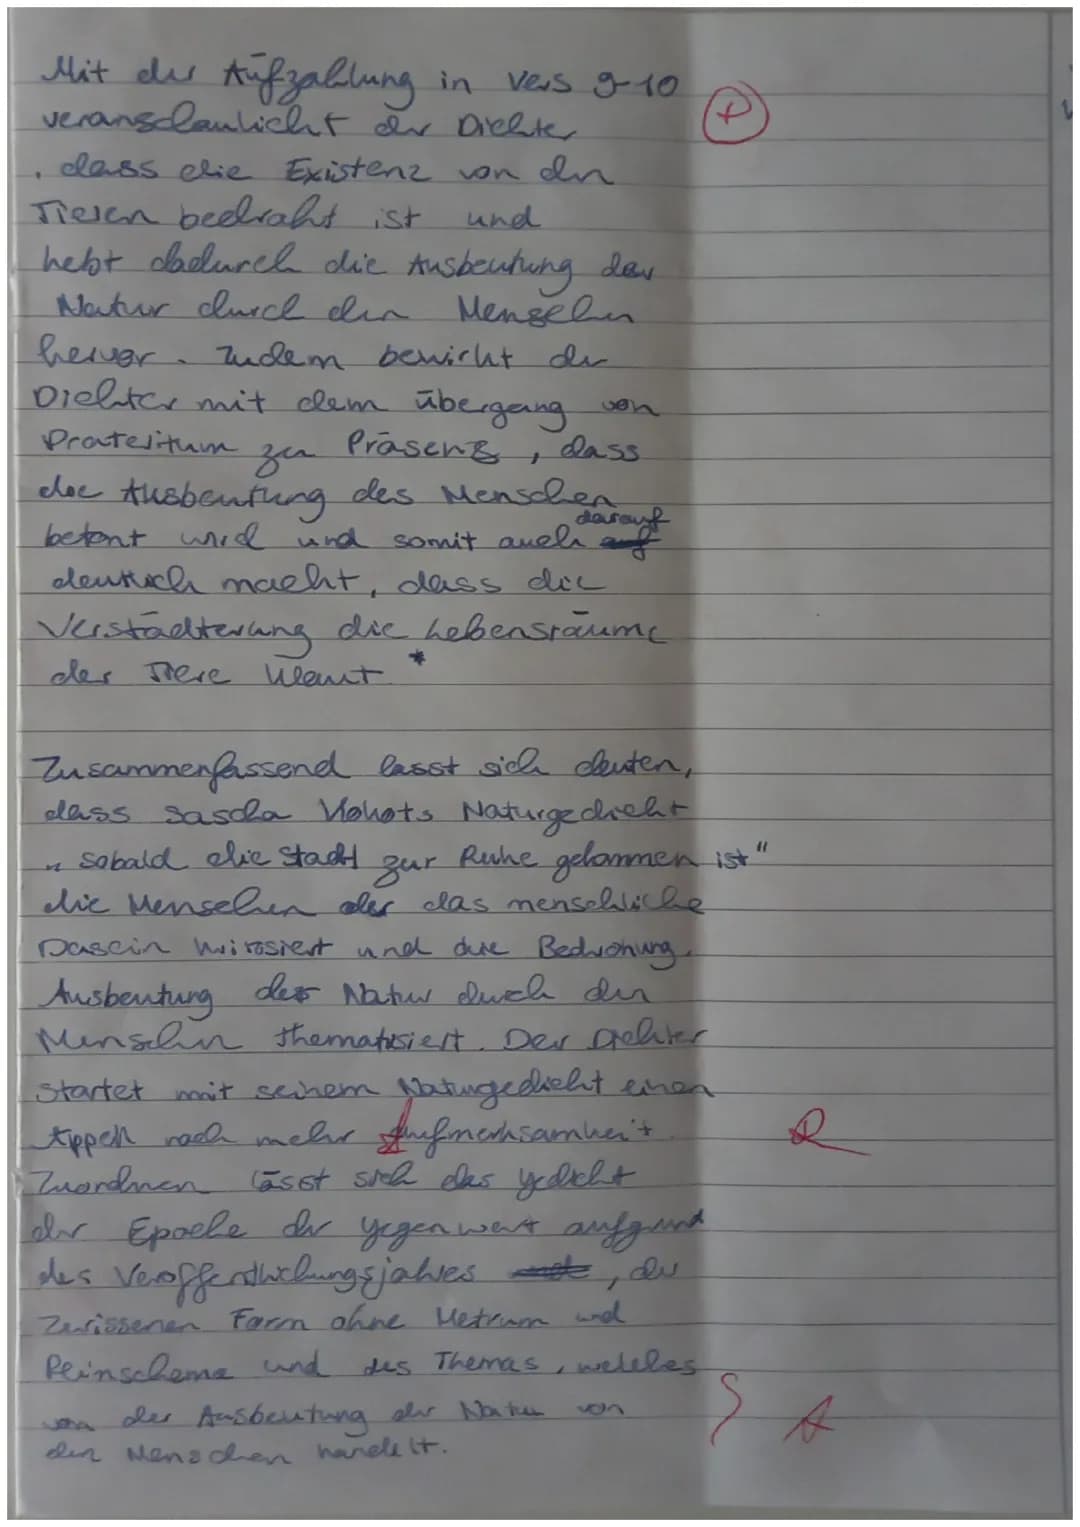 Mit der Aufzählung in Vers 9-10
veranschaulicht der Dichter
, dass die Existenz von den
Tieren bedroht ist und
hebt dadurch die Ausbeutung der
Natur durch den Menschen
hervor. Zudem bewirkt der
Dichter mit dem übergang von
Präteritum zu Präsens, dass
die Ausbeutung des Menschen
betont wird und somit auch darauf
deutlich macht, dass die
Verstädterung die Lebensräume
der Tiere klaut. *
Zusammenfassend lässt sich deuten,
dass Sascha Kokots Naturgedicht
„ sobald die Stadt zur Ruhe gekommen ist"
die Menschen oder das menschliche
Dasein kritisiert und die Bedrohung,
Ausbeutung der Natur durch den
Menschen thematisiert. Der Dichter
startet mit seinem Naturgedicht einen
Appell nach mehr Aufmerksamkeit.
R
Zuordnen lässt sich das Gedicht
der Epoche der Gegenwart aufgrund
des Veröffentlichungsjahres, der
Zerissenen Form ohne Metrum und
Reimschema und des Themas, welches
von der Ausbeutung der Natur von
den Menschen handelt.
A